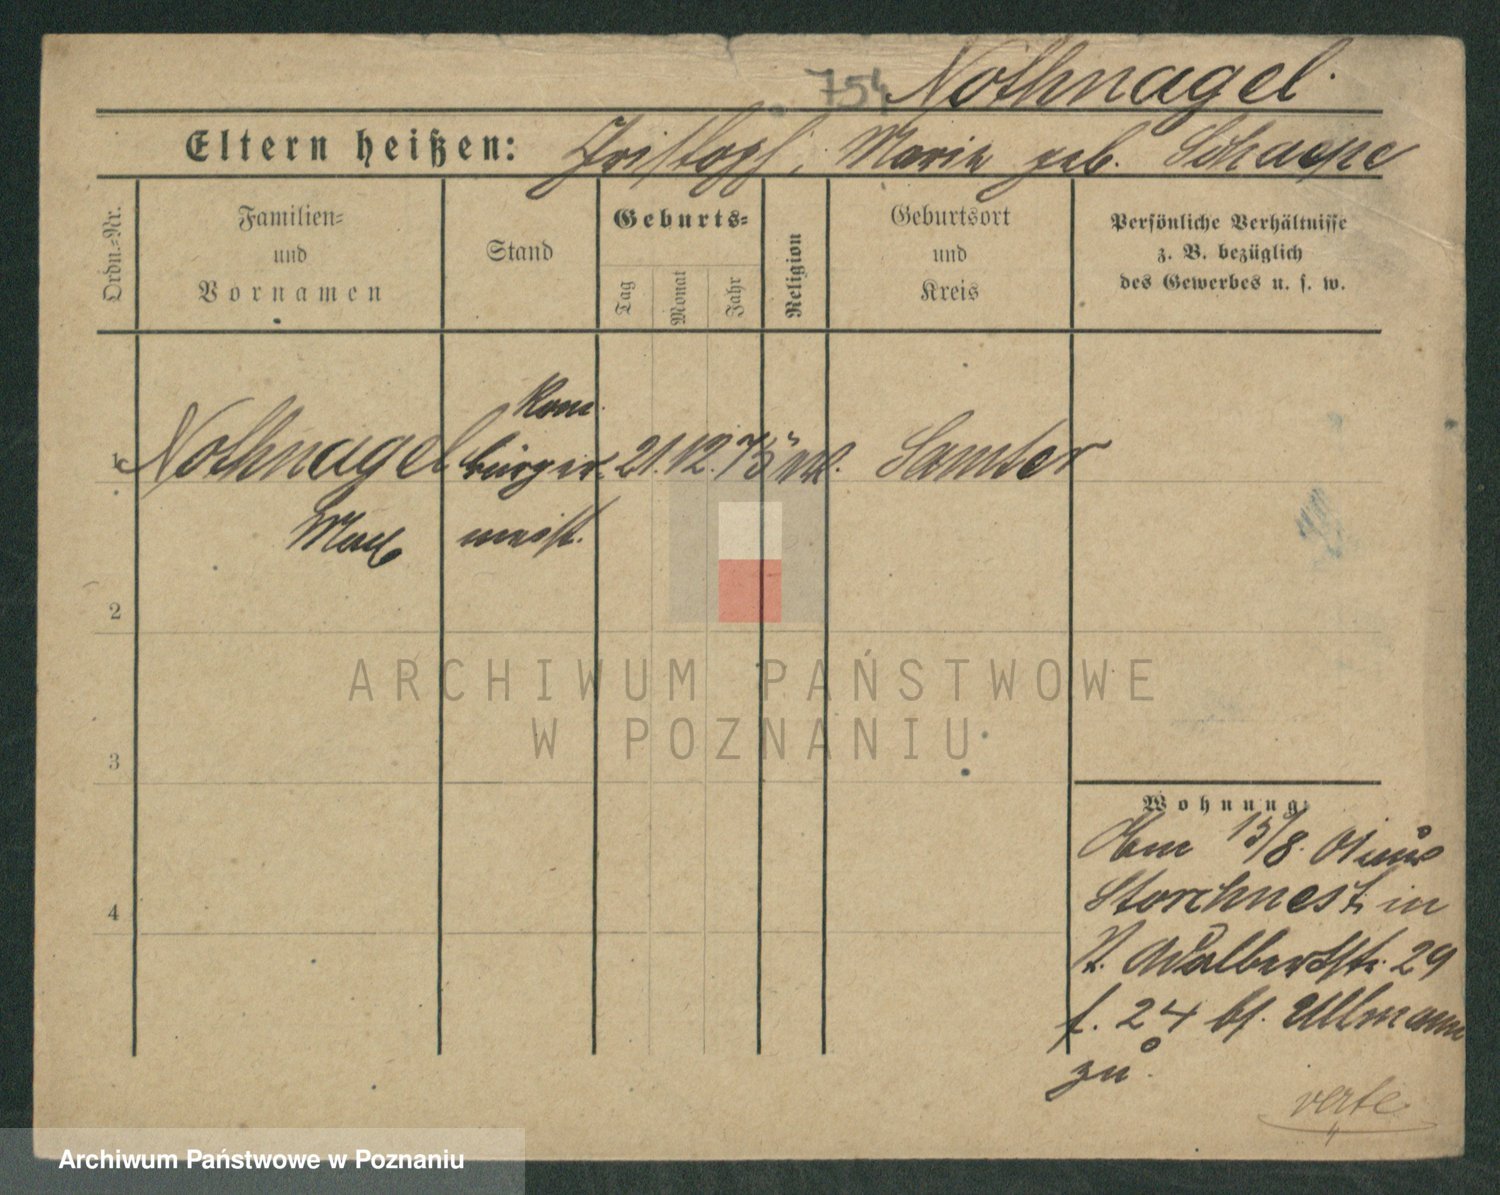 754 Nothnagel.
Eltern heißen: Christoph, Marie geb. Schaepe
Ordn.-Nr.
Familien-
und
Vornamen
Stand
Geburts-
Tag
Monat
Jahr
Religion
Geburtsort
und
Kreis
Persönliche Verhältnisse
z. B. bezüglich
des Gewerbes u. s. w.
Kom.
1 Nothnagel bürger 21. 12. 75 Samter
Max meist.
2
ARCHIWUM PAŃSTWOWE
W POZNANIU
3
Wohnung:
15/8. 01 aus
4
Storchnest in
Adalbertstr. 29
24 bf. Ullmann
zu.
verte
Archiwum Państwowe w Poznaniu